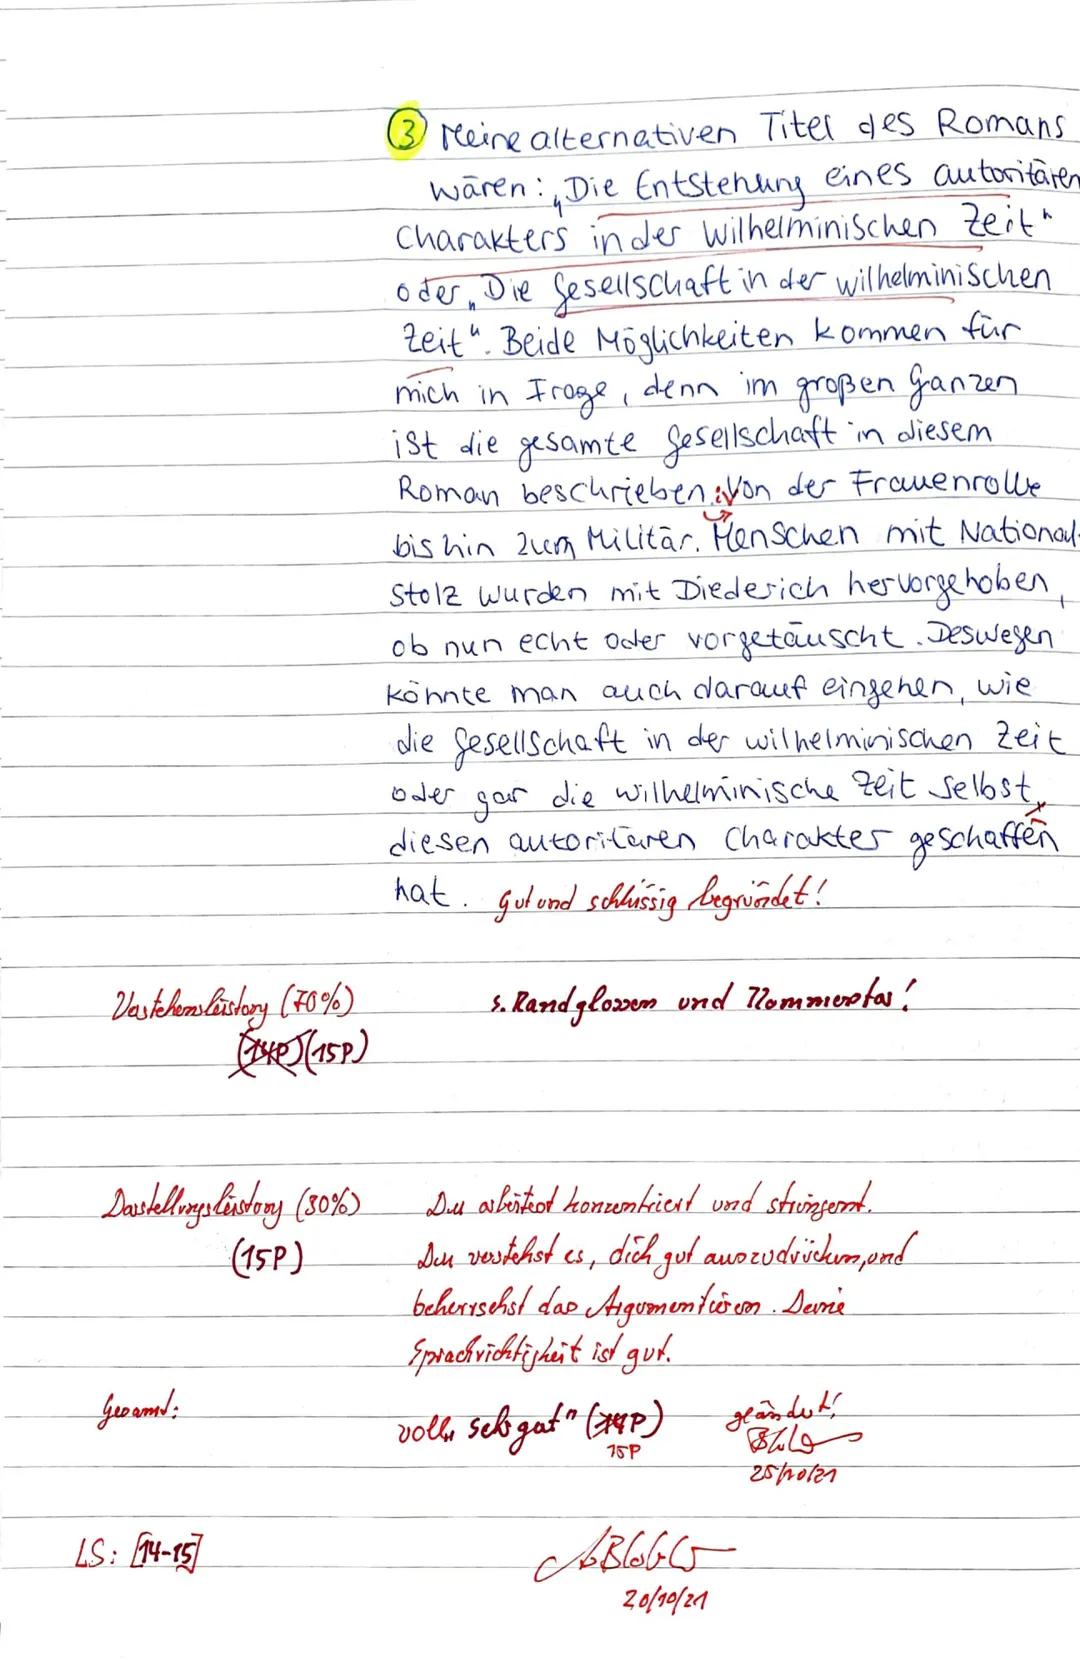 ③ Meine alternativen Titel des Romans
wären: „Die Entstehung eines autoritären
Charakters in der Wilhelminischen Zeit"
oder „Die Gesellschaft in der wilhelminischen
Zeit". Beide Möglichkeiten kommen für
mich in Frage, denn im großen Ganzen
ist die gesamte Gesellschaft in diesem
Roman beschrieben: Von der Frauenrolle
bis hin zum Militär. Menschen mit National-
stolz wurden mit Diederich hervorgehoben,
ob nun echt oder vorgetäuscht. Deswegen
könnte man auch darauf eingehen, wie
die Gesellschaft in der wilhelminischen Zeit
oder gar die wilhelminische Zeit selbst
diesen autoritären Charakter geschaffen
hat. Gut und schlüssig begründet!
Verstehensleistung (70%) s. Randglossen und Kommentar!
(14P) (15P)
Darstellungsleistung (30%) Du arbeitest konzentriert und stringent.
(15P) Du verstehst es, dich gut auszudrücken, und
beherrschst das Argumentieren. Deine
Sprachrichtigkeit ist gut.
Gesamt: voll „sehr gut" (14P) geändert!
15P
25/10/21
LS: [14-15]
20/10/21